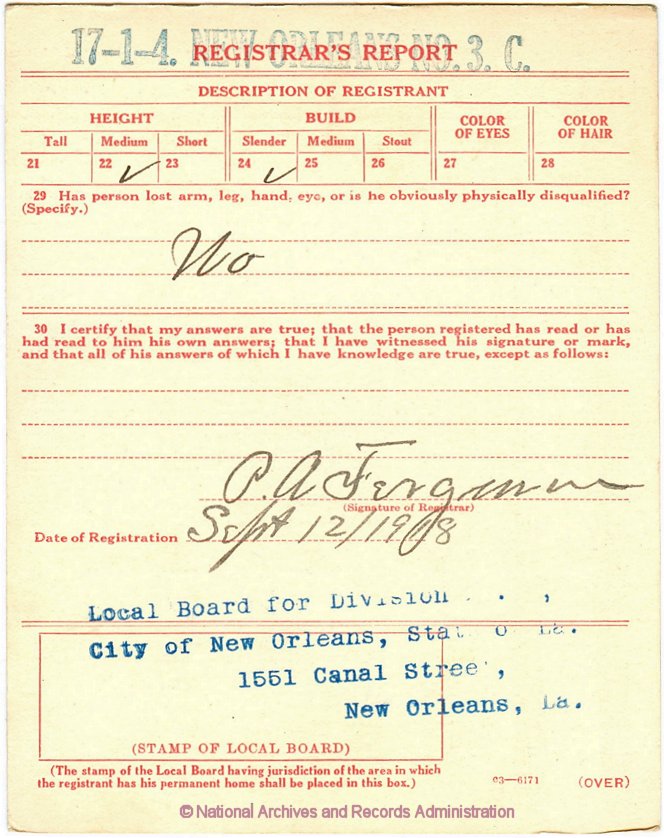 17-1-4. NEW ORLEANS NO. 3. C.
REGISTRAR'S REPORT
DESCRIPTION OF REGISTRANT
HEIGHT BUILD COLOR OF EYES COLOR OF HAIR
Tall Medium Short Slender Medium Stout
21 22 ✓ 23 24 ✓ 25 26 27 28
29 Has person lost arm, leg, hand, eye, or is he obviously physically disqualified?
(Specify.)
No
30 I certify that my answers are true; that the person registered has read or has
had read to him his own answers; that I have witnessed his signature or mark,
and that all of his answers of which I have knowledge are true, except as follows:
P. A Ferguson
(Signature of Registrar)
Date of Registration Sept 12/1918
Local Board for Division
City of New Orleans, State of La.
1551 Canal Street,
New Orleans, La.
(STAMP OF LOCAL BOARD)
(The stamp of the Local Board having jurisdiction of the area in which
the registrant has his permanent home shall be placed in this box.)
03—6171 (OVER)
© National Archives and Records Administration